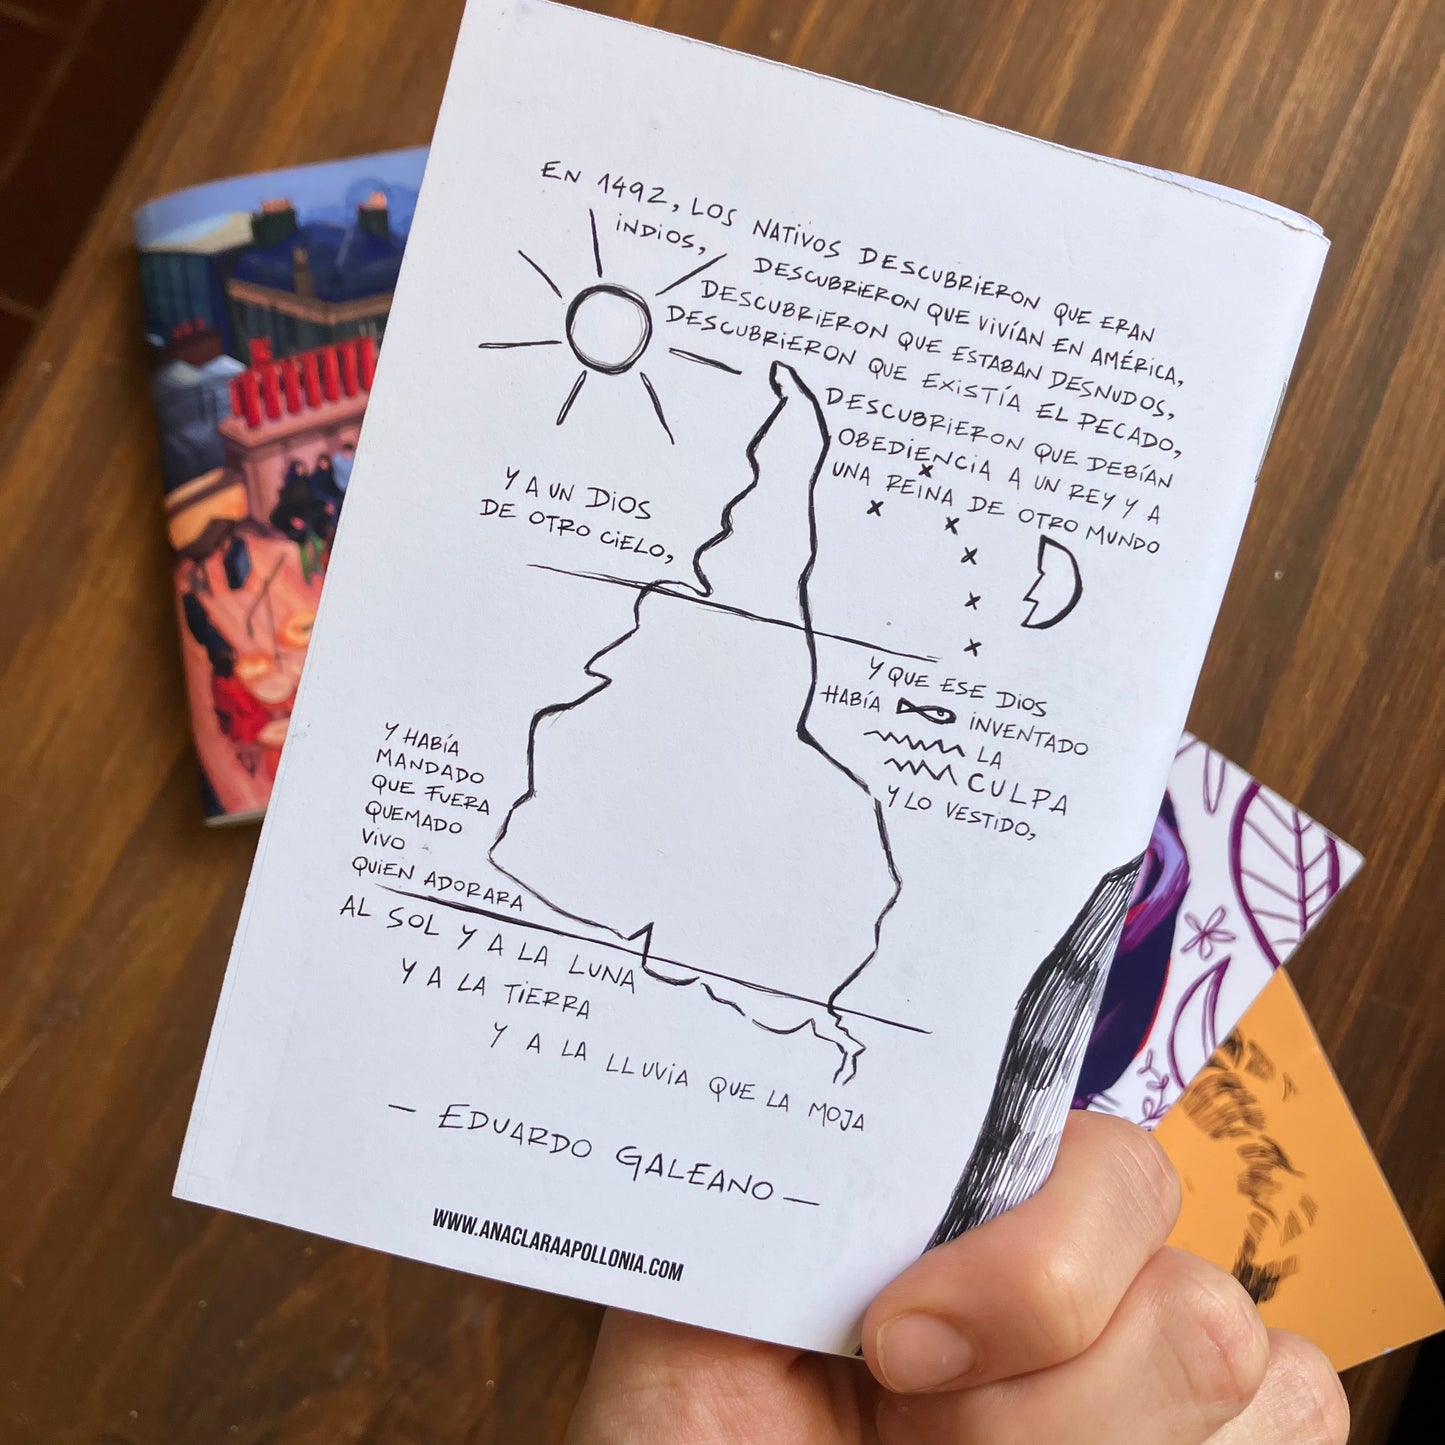 EN 1492, LOS NATIVOS DESCUBRIERON QUE ERAN
INDIOS,
DESCUBRIERON QUE VIVÍAN EN AMÉRICA,
DESCUBRIERON QUE ESTABAN DESNUDOS,
DESCUBRIERON QUE EXISTÍA EL PECADO,
DESCUBRIERON QUE DEBÍAN
OBEDIENCIA A UN REY Y A
UNA REINA DE OTRO MUNDO
Y A UN DIOS
DE OTRO CIELO,
Y QUE ESE DIOS
HABÍA INVENTADO
LA
CULPA
Y LO VESTIDO,
Y HABÍA
MANDADO
QUE FUERA
QUEMADO
VIVO
QUIEN ADORARA
AL SOL Y A LA LUNA
Y A LA TIERRA
Y A LA LLUVIA QUE LA MOJA
— EDUARDO GALEANO —
WWW.ANACLARAAPOLLONIA.COM